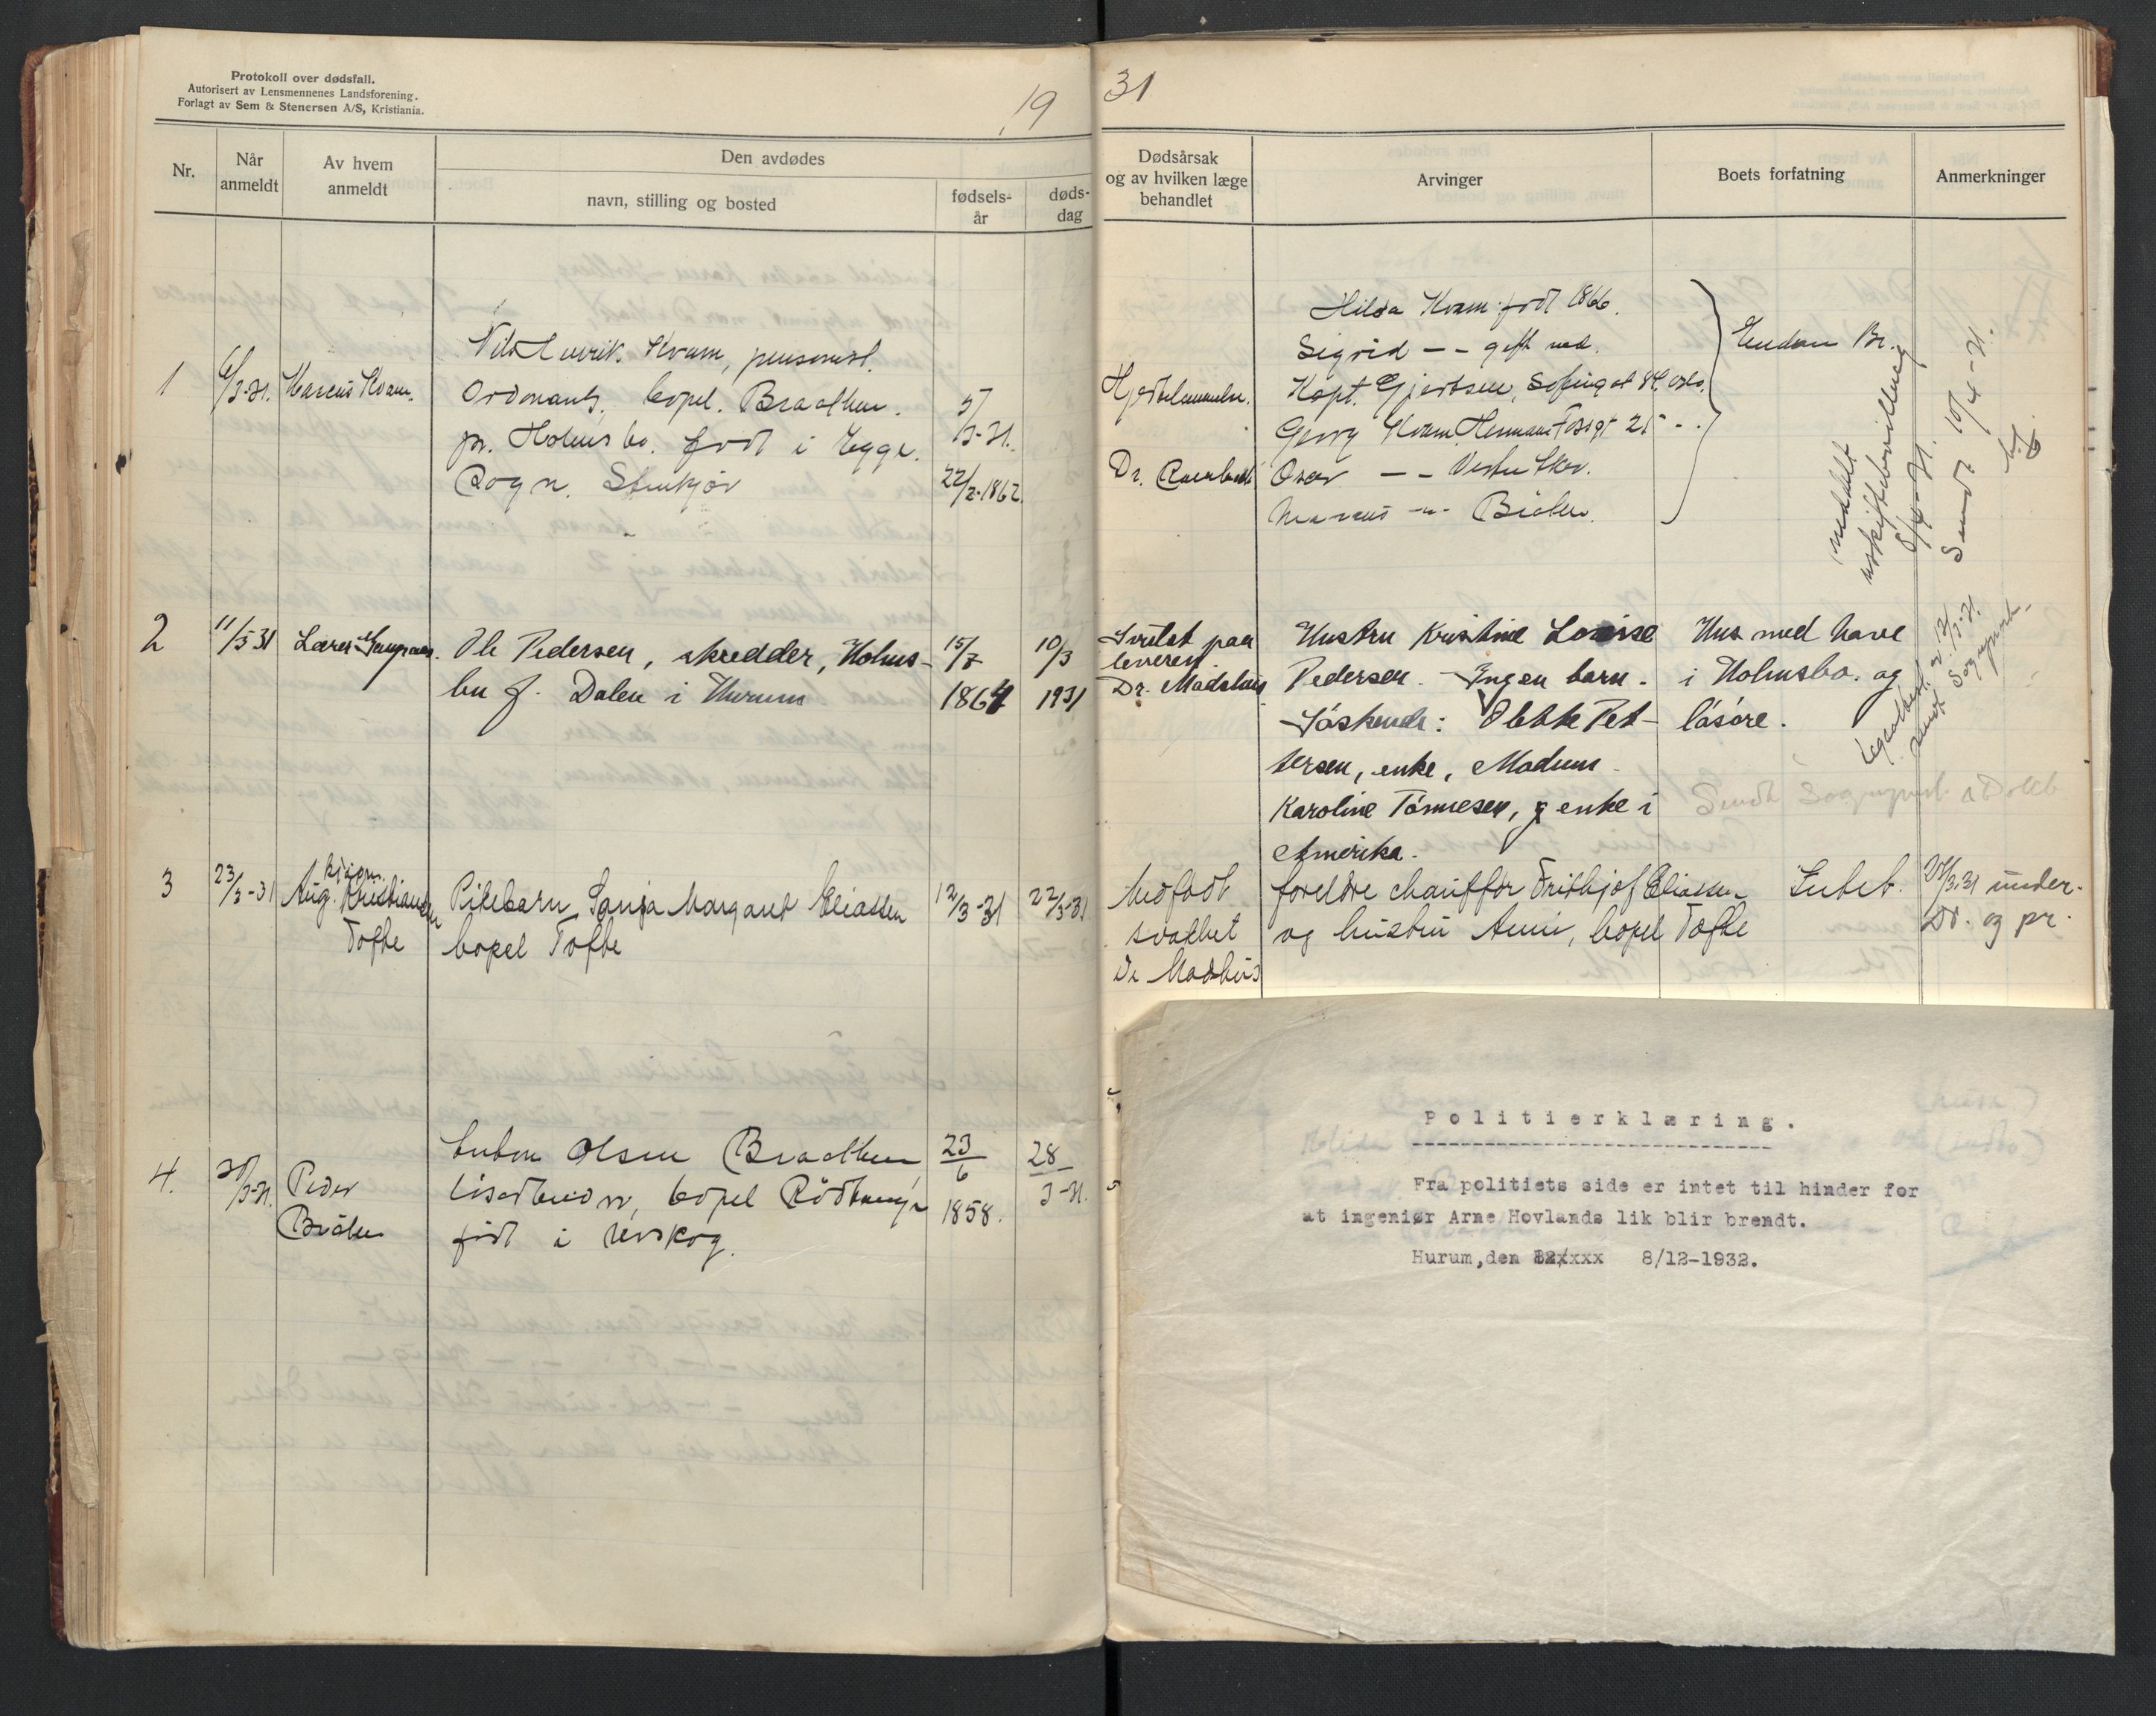 Protokoll over dødsfall.
Autorisert av Lensmennenes Landsforening.
Forlagt av Sem & Stenersen A/S, Kristiania.
19
31
Nr.
Når anmeldt
Av hvem anmeldt
Den avdødes
navn, stilling og bosted
fødsels-år
døds-dag
Dødsårsak og av hvilken læge behandlet
Arvinger
Boets forfatning
Anmerkninger
1
6/3-31.
Marcus Kvam.
Kvam, pensionst.
Ordonants, bopel. Braathen.
pr. Holmsbo. født i Egge.
Sogn. Stenkjør
5/3-31.
22/2-1862
Hjertelammelse.
Dr.
Hilda Kvam født 1866.
Sigrid -- gift med.
Kapt. Gjertsen, Sofiesgat Oslo.
Georg Kvam, Hermans 25 - .
Oscar -- Skov.
Marcus -"- Bråten.
Enden Br.
meddelt
uskiftebevilling
8/4-31.
Sendt 10/4-31.
2
11/3 31
Lærer
Ole Pedersen, skredder, Holms-
bu f. Dalen i Hurum
15/7
1864
10/3
1931
Svulst paa
leveren
Dr. Madshus
Hustru Kristine Lovise
Pedersen. - Ingen barn.
Søskende: Olette Pet-
tersen, enke, Modum.
Karoline Tønnesen, enke i
Amerika.
Hus med have
i Holmsbo. og
løsøre.
sendt Sogneprest.
Sendt Sogneprest
3
23/3-31
Aug. Kristiansen
Tofte
Pikebarn Sonja Margaret Eliassen
bopel Tofte
12/3-31
22/3-31
Medfødt
svakhet
Dr Madshus
foreldre chauffør Frithjof Eliassen
og hustru Anni, bopel Tofte
Intet.
under-
Dr. og pr.
4.
30/3-31.
Peder
Bråten
Anton Olsen Braathen
bopel Rødtangen
født i Urskog.
23/6
1858.
28/3-31.
Politierklæring.
Fra politiets side er intet til hinder for
at ingeniør Arne Hovlands lik blir brendt.
Hurum,den 8/12-1932.